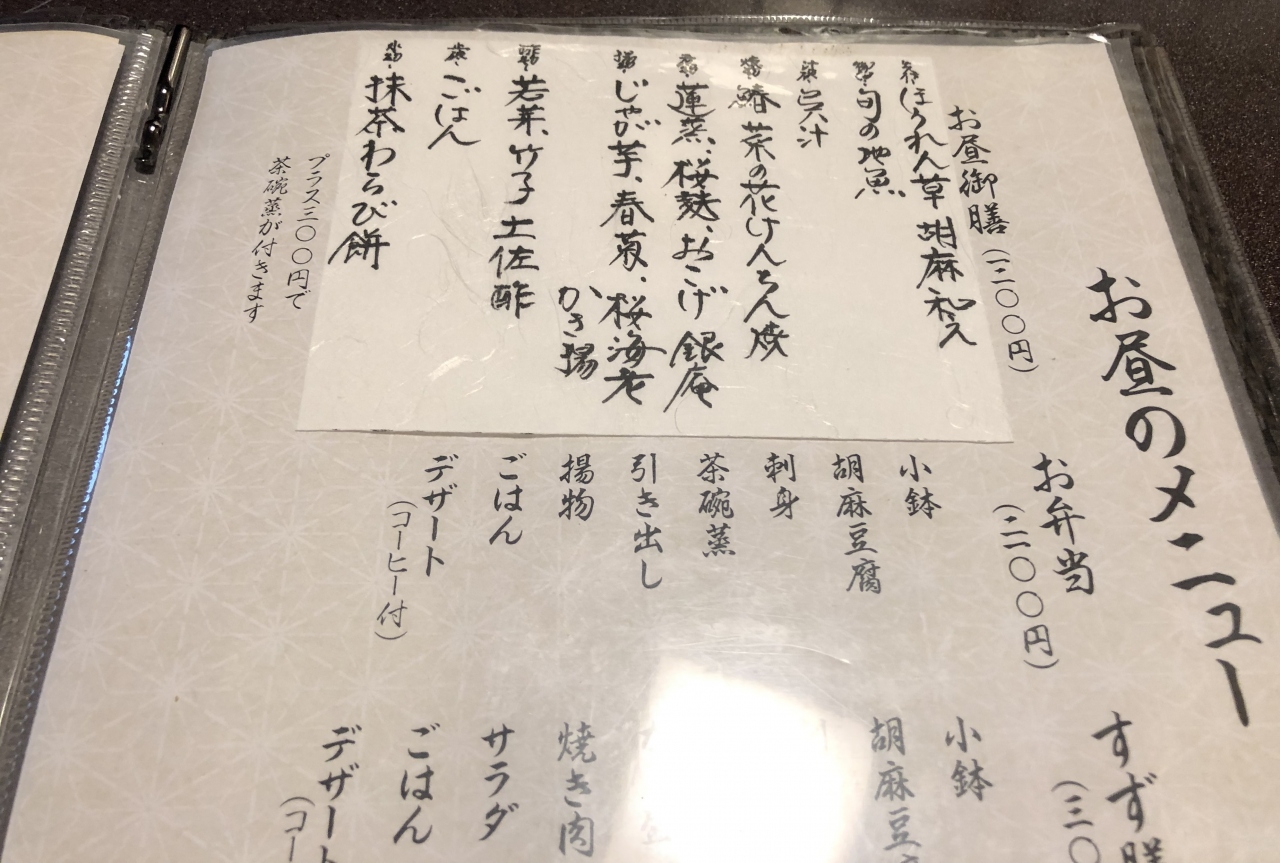 お昼のメニュー
お昼御膳
(一二〇〇円)
ほうれん草 胡麻和え
旬の地魚
呉汁
鰆 菜の花けんちん焼
蓮蒸、桜麩、おこげ 銀庵
じゃが芋、春菊、桜海老
かき揚
若菜、竹子 土佐酢
ごはん
抹茶わらび餅
プラス三〇〇円で
茶碗蒸が付きます
お弁当
(二一〇〇円)
小鉢
胡麻豆腐
刺身
茶碗蒸
引き出し
揚物
ごはん
デザート
(コーヒー付)
すず膳
(三〇
小鉢
胡麻豆腐
焼き肉
サラダ
ごはん
デザート
(コー